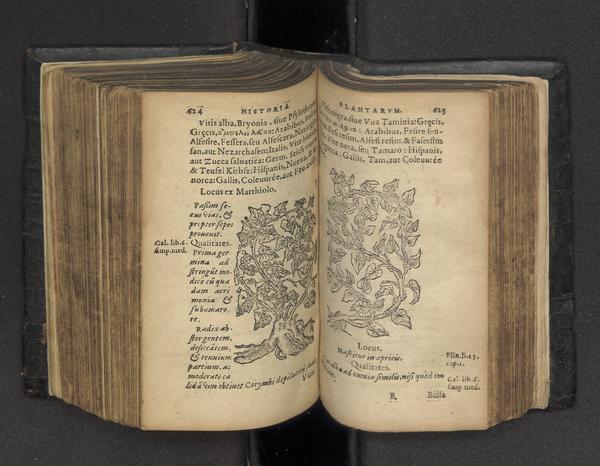 624 HISTORIA
Vitis alba, Bryonia, siue Psylothrum
Græcis, ἄμπελος λευκὴ: Arabibus,
Alfesire, Fessera, seu Alfescera,
san, aut Nezarchasen: Italis, Vite bianca
aut Zucca saluatica: Germ. Stich
& Teufel Kirbsz: Hispanis, Nueza,
norca: Gallis, Coleuurée, aut Feu
Locus ex Matthiolo.
Passim se-
cus vias, &
propter sepes
prouenit.
Gal. lib. 6.
simp. med.
Qualitates.
Prima ger
mina ad
stringũt mo
dice cũ qua
dam acri
monia &
subamaro
re.
Radix ab-
stergentem,
desiccãtem,
& tenuium
partium, ac
moderatè ca
lidã vim obtinet Corymbi depilatorij
Vitis
PLANTARVM. 625
Vitis nigra, siue Vua Taminia: Græcis,
: Arabibus, Fesire sen-
Fesiresim, Alfesiresim, & Faserssin
Vite nera, seu Tamaro: Hispanis,
norca: Gallis, Tam, aut Coleuurée
Locus.
Nascitur in apricis.
Plin. li. 23.
cap. 1.
Qualitates.
alba ad omnia similis, nisi quòd in
Gal. lib. 6.
simp. med.
R Balsa